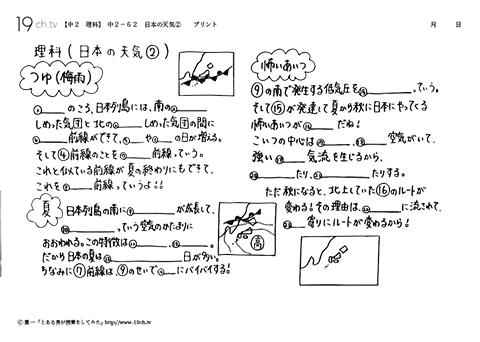 19ch.tv 【中2 理科】 中2-62 日本の天気② プリント 月 日
理科(日本の天気②)
つゆ(梅雨)
①____のころ、日本列島には、南の②____
しめった気団と北の③____しめった気団の間に
④____前線ができて、⑤____や⑥____の日が増える。
そして④前線のことを____前線っていう。
これと似ている前線が夏の終わりにもできて、
これを____前線っていうよ!!
夏
日本列島の南に____が成長して、
____っていう空気のかたまりに
おおわれる。この特徴は____、____。
だから日本の夏は____日が多い。
ちなみに⑦前線は、⑨のせいで____にバイバイする!
高
怖いあいつ
⑨の南で発生する低気圧を____っていう。
そして⑮が発達して夏から秋に日本にやってくる
怖いあいつが____だね!
こいつの中心は____、____空気がいて、
強い____気流を生じるから、
____たり、____たりする。
ただ秋になると、北上していた⑯のルートが
変わる!その理由は、____に流されて、
____寄りにルートが変わるから!
©葉一「とある男が授業をしてみた」http://www.19ch.tv